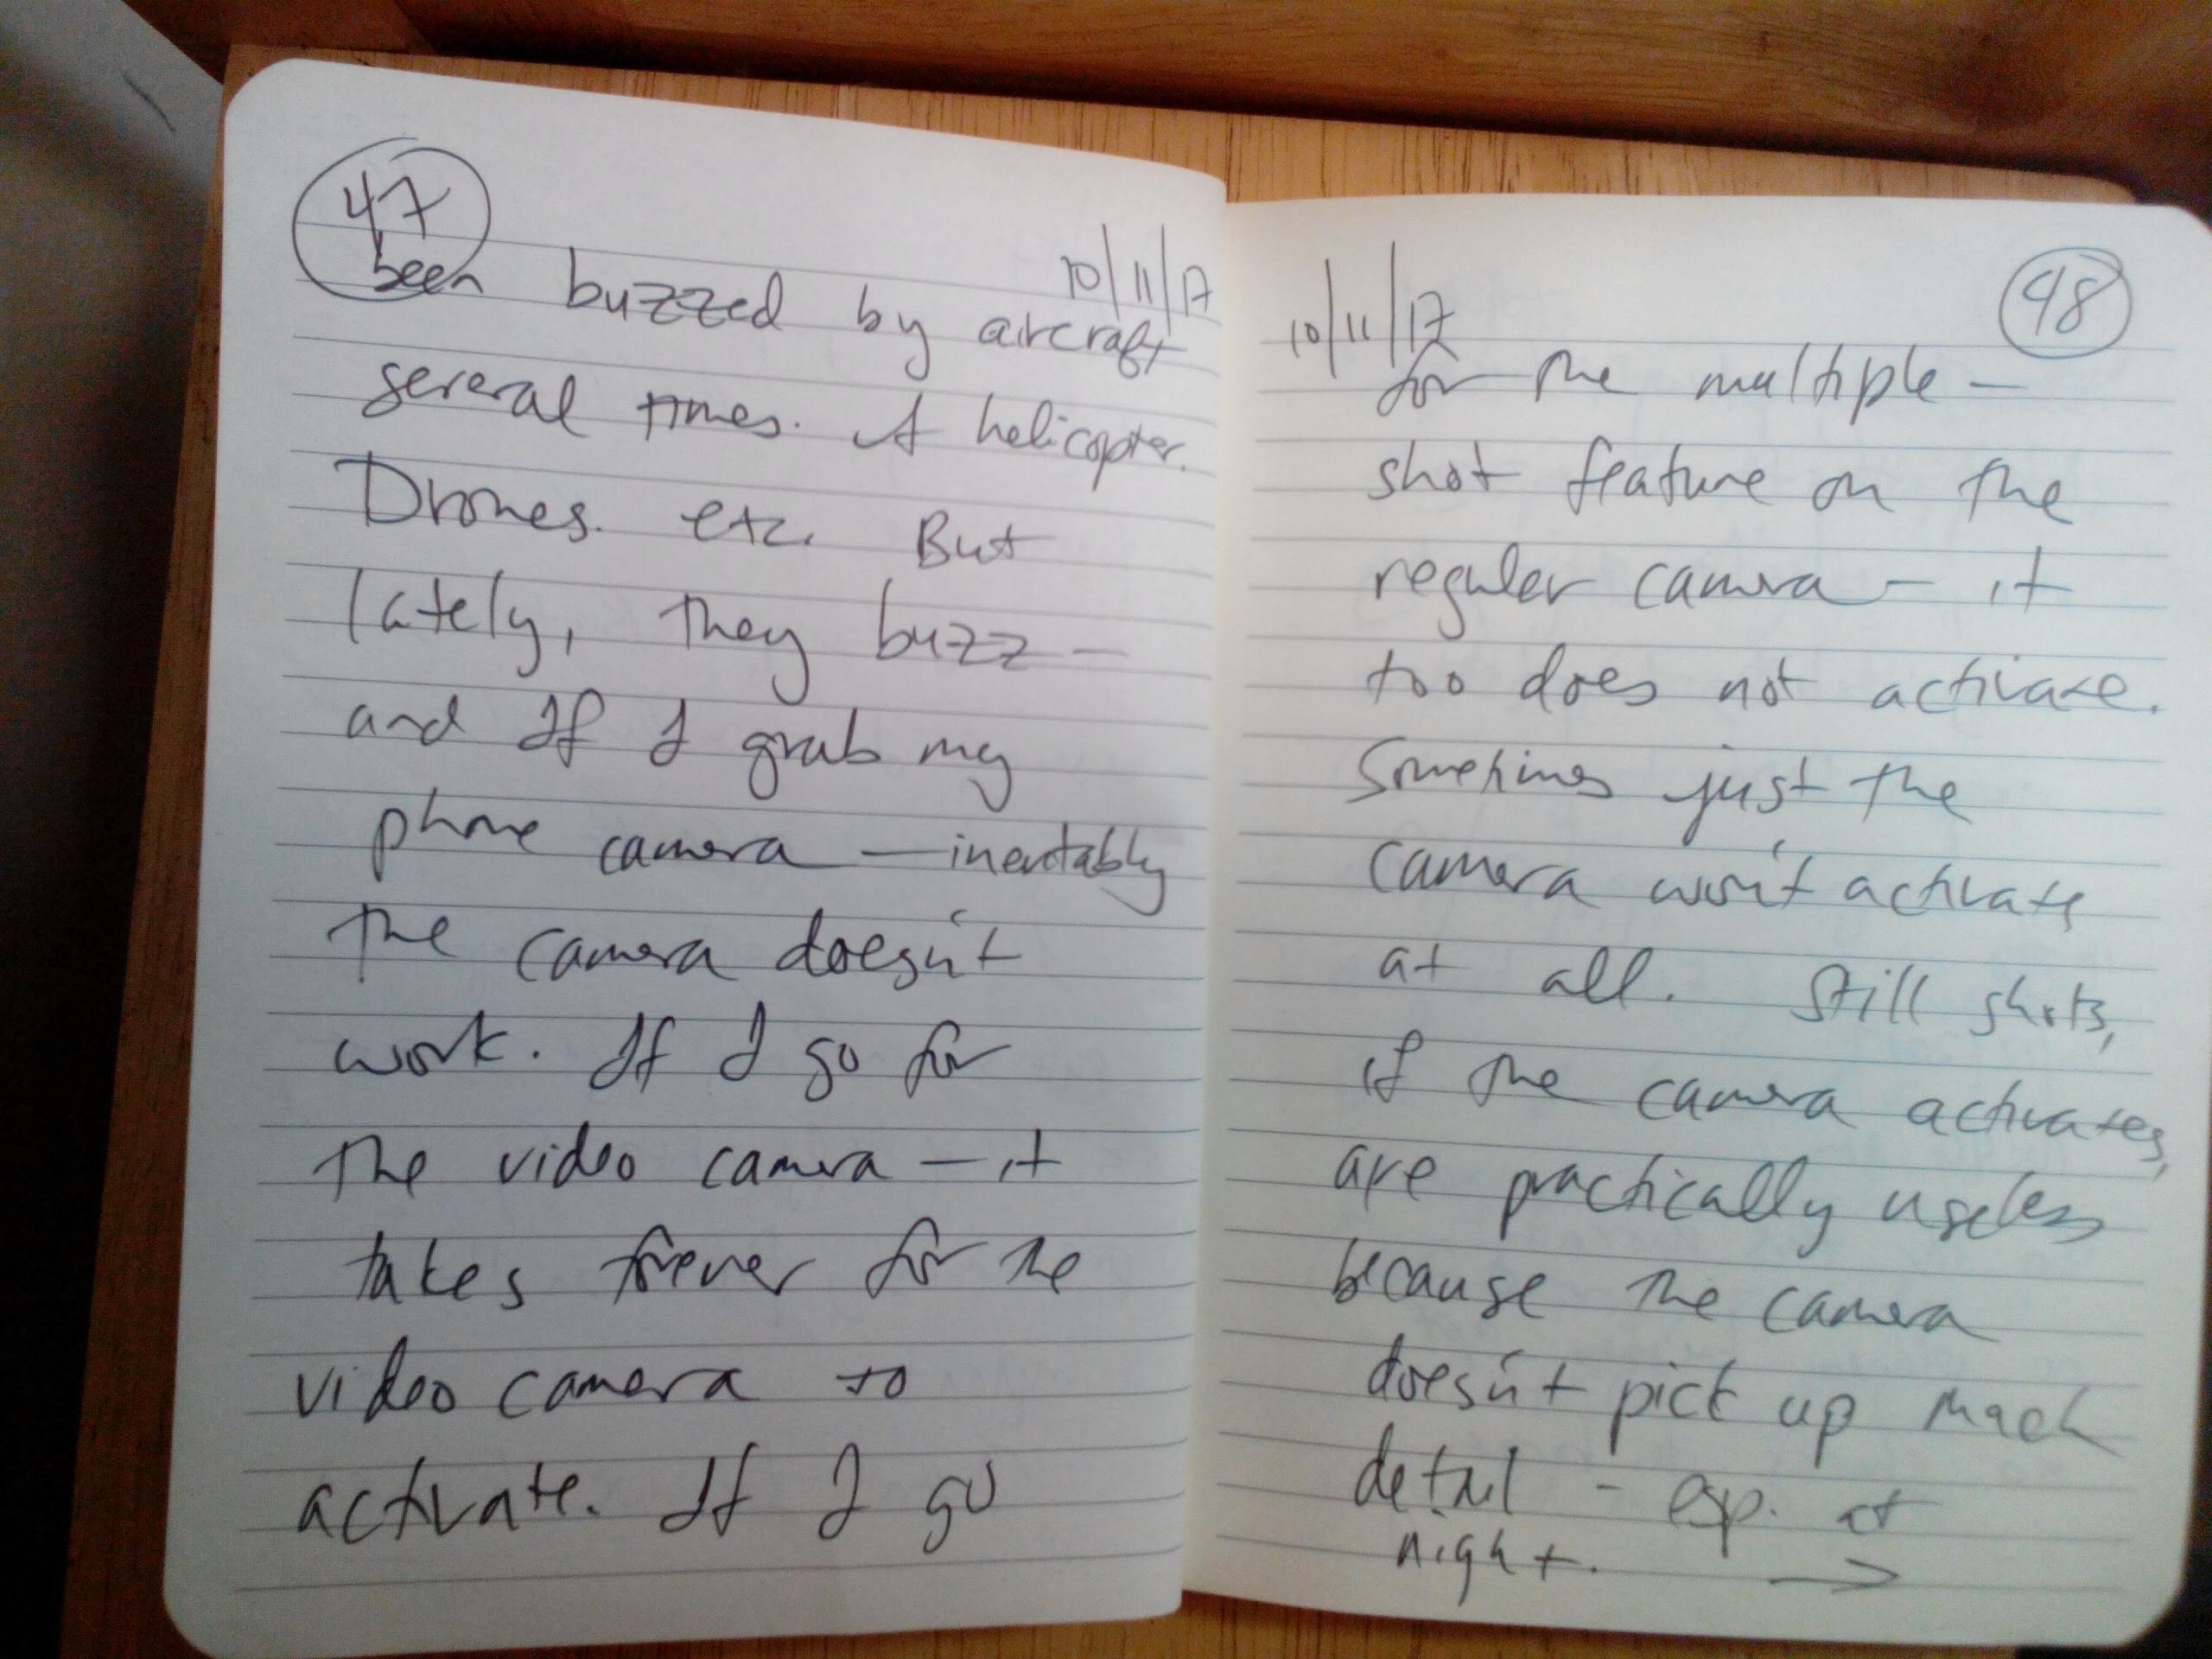 47
10/11/17
been buzzed by aircraft
several times. A helicopter.
Drones. etc. But
lately, they buzz—
and If I grab my
phone camera—inevitably
the camera doesn't
work. If I go for
the video camera—it
takes forever for the
video camera to
activate. If I go
48
10/11/17
for the multiple-
shot feature on the
regular camera—it
too does not activate.
Sometimes just the
camera won't activate
at all. Still shots,
if the camera activates,
are practically useless
because the camera
doesn't pick up much
detail - esp. at
night. →